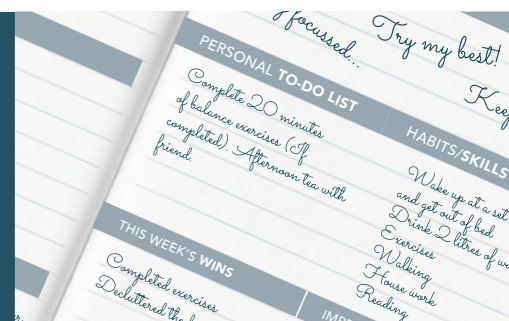 focussed...
Try my best!
PERSONAL TO-DO LIST
Complete 20 minutes
of balance exercises (If
completed). Afternoon tea with
friend.
HABITS/SKILLS
Wake up at a set
and get out of bed
Drink 2 litres of
Exercises
Walking
House work
Reading
THIS WEEK'S WINS
Completed exercises
Decluttered the